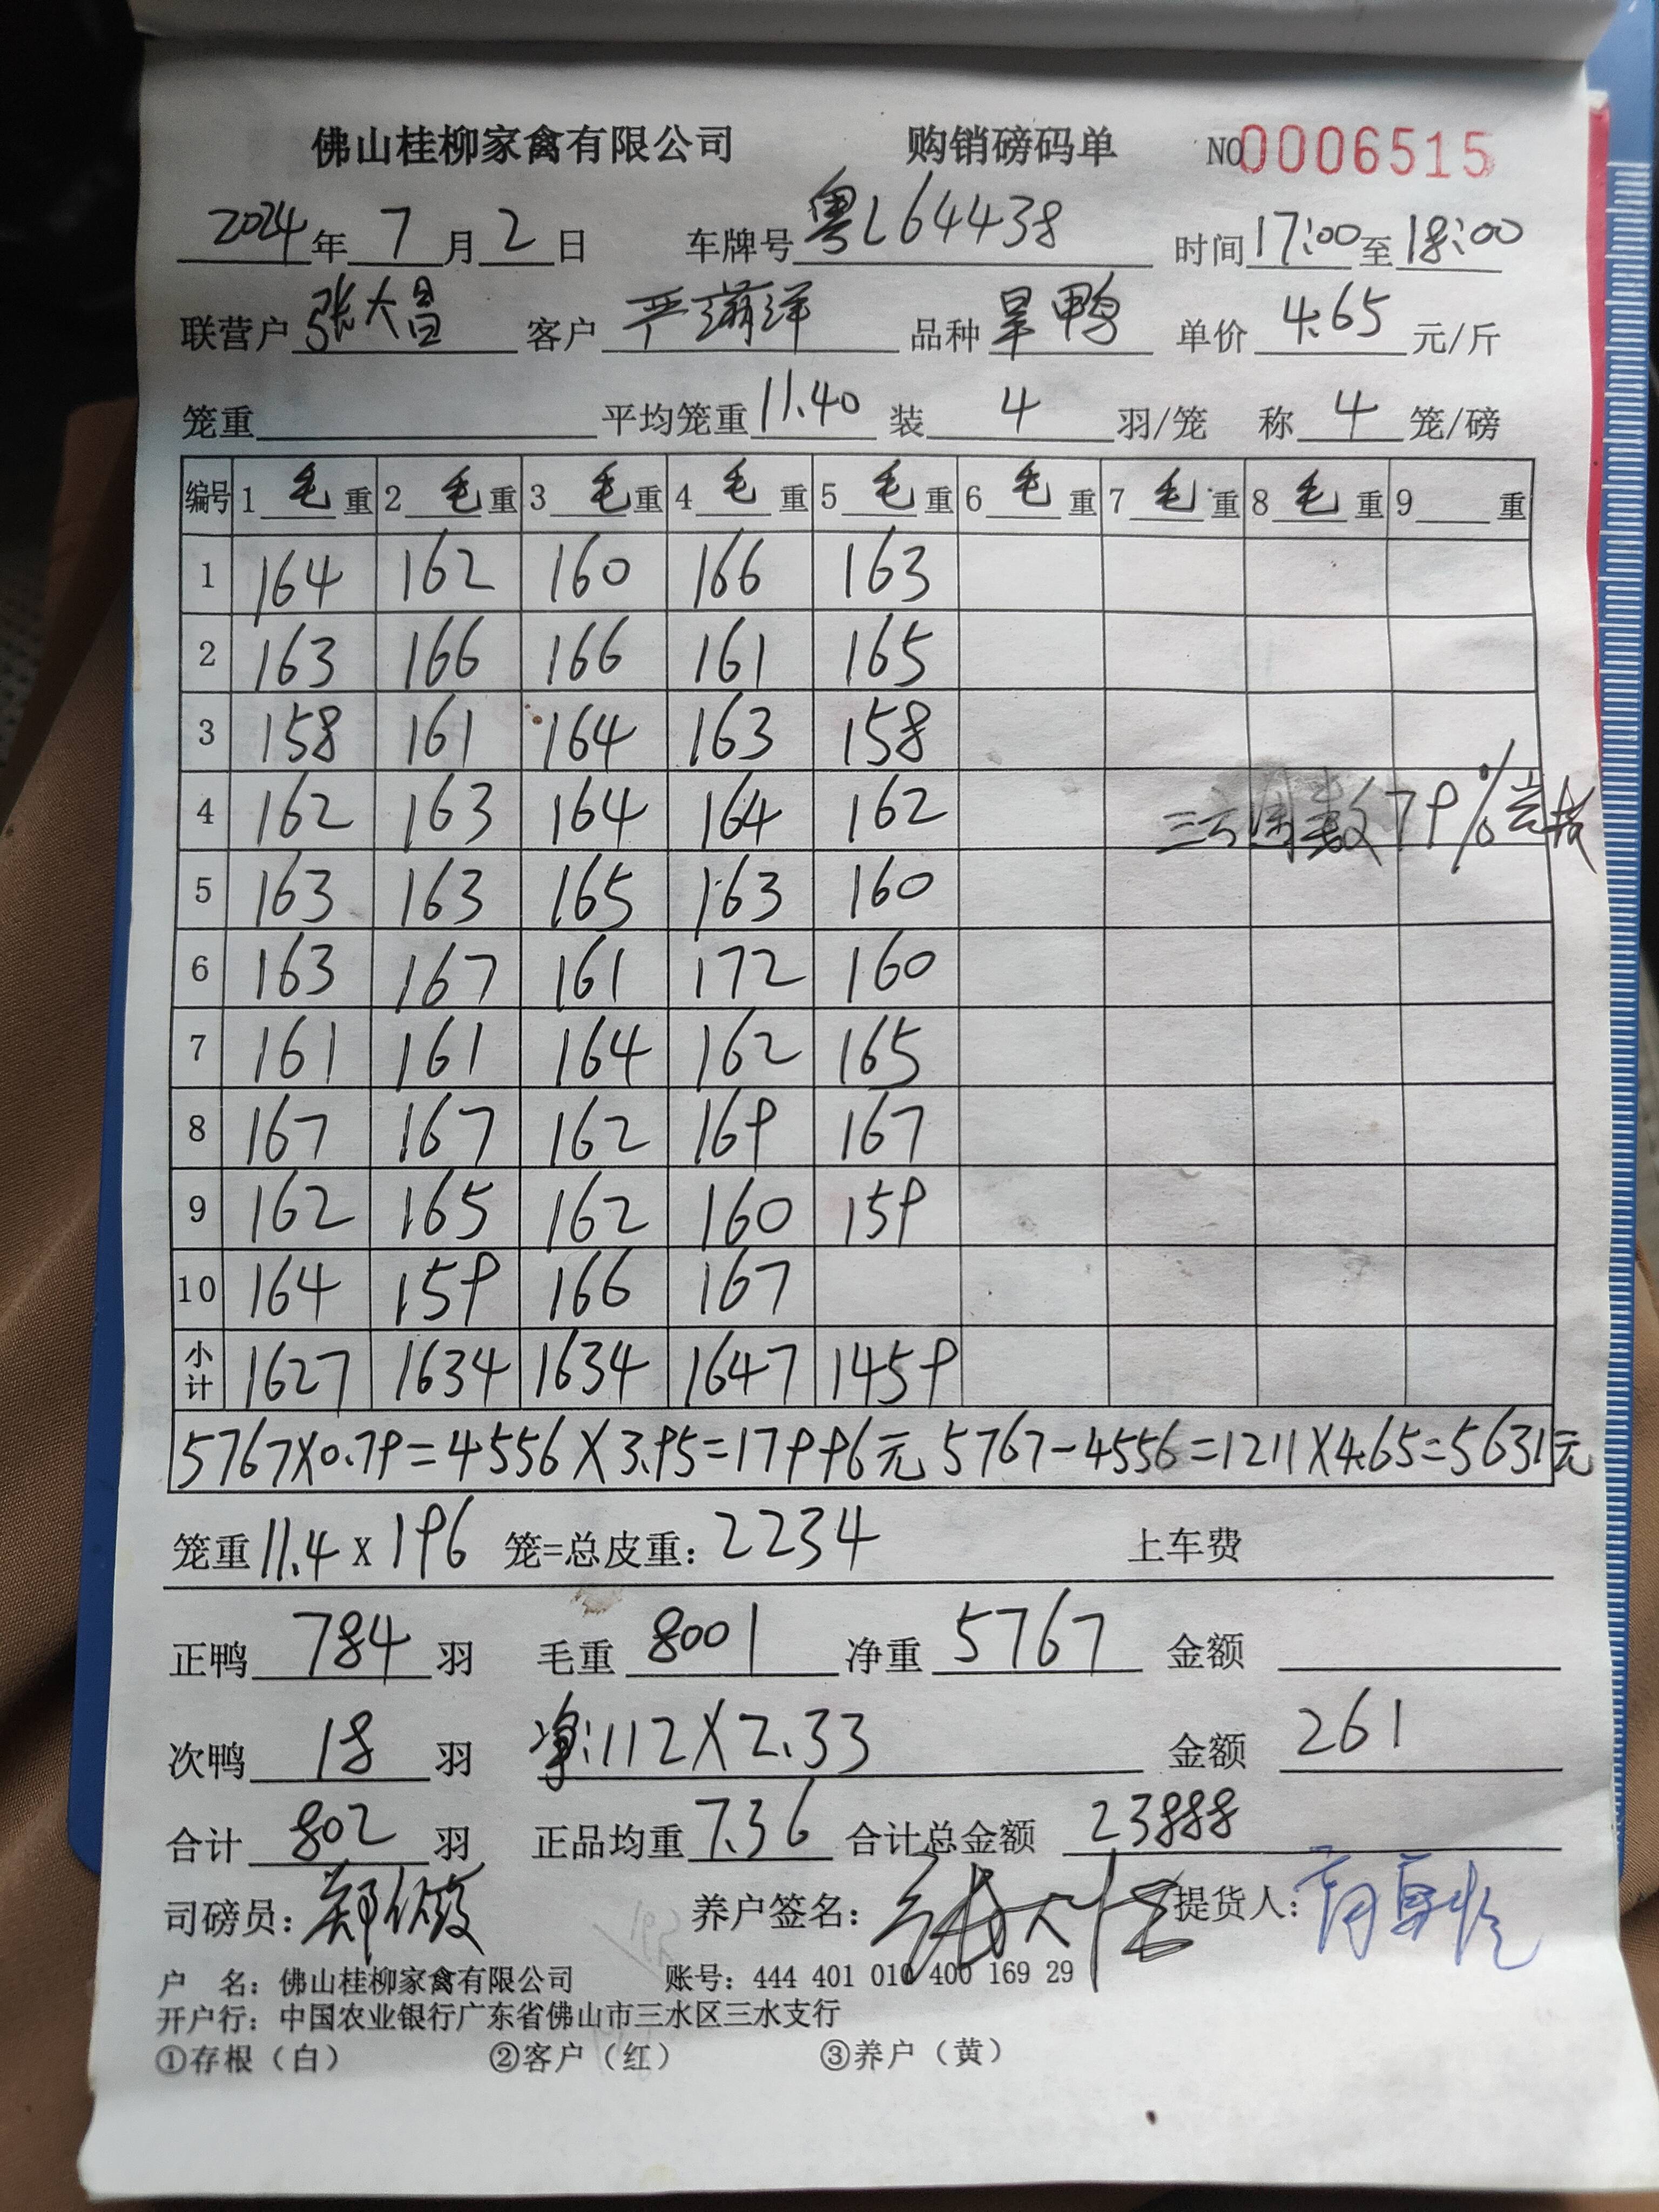 佛山桂柳家禽有限公司 购销磅码单 NO 0006515
2024年 7月 2日 车牌号 粤L64438 时间 17:00 至 18:00
联营户 张大昌 客户 严满洋 品种 旱鸭 单价 4.65 元/斤
笼重 平均笼重 11.40 装 4 羽/笼 称 4 笼/磅
编号 1 毛 重 2 毛 重 3 毛 重 4 毛 重 5 毛 重 6 毛 重 7 毛 重 8 毛 重 9 重
1 164 162 160 166 163
2 163 166 166 161 165
3 158 161 164 163 158
4 162 163 164 164 162 79%
5 163 163 165 163 160
6 163 167 161 172 160
7 161 161 164 162 165
8 167 167 162 169 167
9 162 165 162 160 159
10 164 159 166 167
小计 1627 1634 1634 1647 1459
5767X0.79=4556X3.95=17996元 5767-4556=1211X4.65=5631元
笼重 11.4 x 196 笼=总皮重: 2234 上车费
正鸭 784 羽 毛重 8001 净重 5767 金额
次鸭 18 羽 净:112X2.33 金额 261
合计 802 羽 正品均重 7.36 合计总金额 23888
司磅员: 养户签名: 提货人:
户 名: 佛山桂柳家禽有限公司 账号: 444 401 010 400 169 29
开户行: 中国农业银行广东省佛山市三水区三水支行
①存根（白） ②客户（红） ③养户（黄）